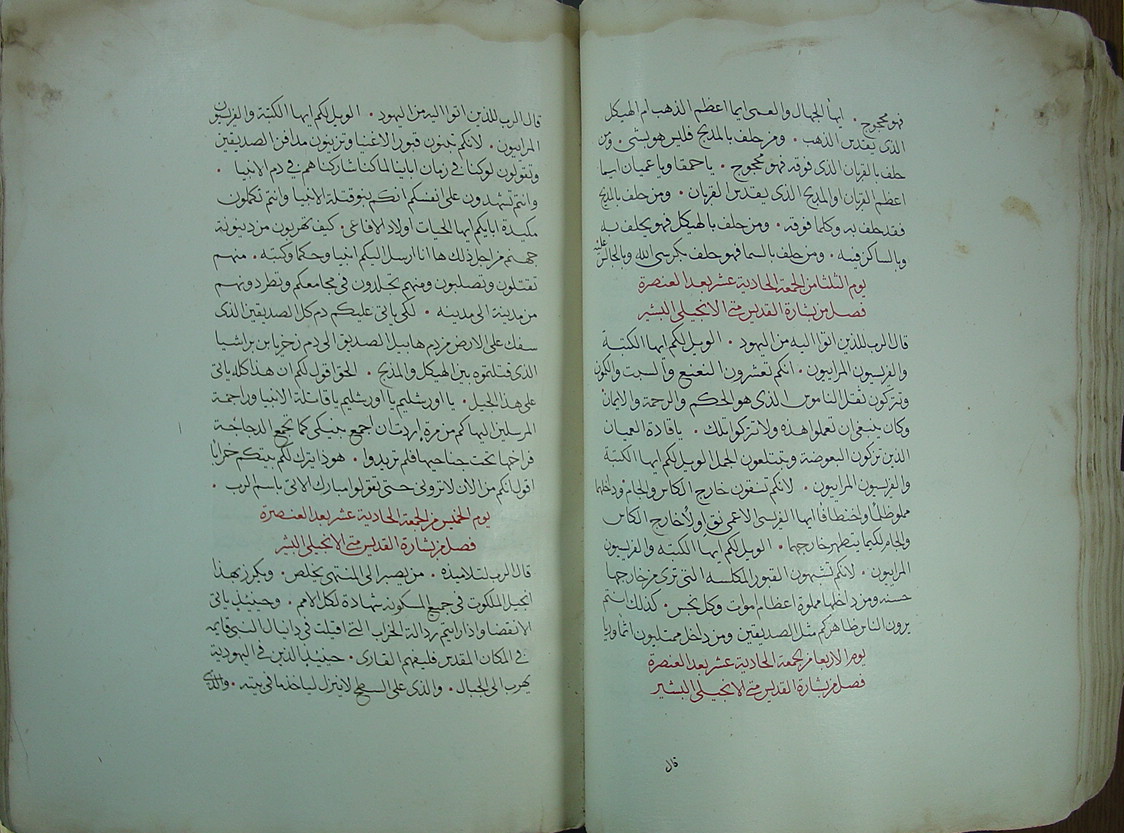 فهو محجوج • ايها الجهال والعمى ايما اعظم الذهب ام الهيكل
الذى يقدس الذهب • ومن حلف بالمذبح فليس هو بشى • ومن
حلف بالقربان الذى فوقه فهو محجوج • يا حمقا ويا عميان ايما
اعظم القربان او المذبح الذى يقدس القربان • ومن حلف بالمذبح
فقد حلف به وكلما فوقه • ومن حلف بالهيكل فهو يحلف به
وبالساكن فيه • ومن حلف بالسما فهو حلف بكرسى الله وبالجالس عليه
يوم الثلثا من الجمعة الحادية عشر بعد العنصرة
فصل من بشارة القديس متى الانجيلى البشير
قال الرب للذين اتوا اليه من اليهود • الويل لكم ايها الكتبة
والفريسيون المرايون • انكم تعشرون النعنع والسبت والكمون
وتتركون ثقل الناموس الذى هو الحكم والرحمة والايمان
وكان ينبغى ان تعملوا هذه ولا تتركوا تلك • يا قادة العميان
الذين تركون البعوضة وتبتلعون الجمل الويل لكم ايها الكتبة
والفريسيون المرايون • لانكم تنقون خارج الكاس والجام • وداخلها
مملو ظلما واختطافا ايها الفريسى الاعمى نق اولا خارج الكاس
والجام لكيما يتطهر خارجهما • الويل لكم ايها الكتبة والفريسيون
المرايون • لانكم تشبهون القبور المكلسه التى ترى من خارجها
حسنه ومن داخلها مملوة اعظام اموات وكل نجس • كذلك انتم
يرون الناس ظاهركم مثل الصديقين ومن داخل ممتليون اثما وريا
يوم الاربعا من الجمعة الحادية عشر بعد العنصرة
فصل من بشارة القديس متى الانجيلى البشير
قال
قال الرب للذين اتوا اليه من اليهود • الويل لكم ايها الكتبة والفريسيون
المرايون • لانكم تبنون قبور الاغنيا وتزينون مدافن الصديقين
وتقولون لو كنا فى زمان ابائنا لما كنا شاركناهم فى دم الانبيا •
وانتم تشهدون على نفسكم انكم بنو قتلة الانبيا وانتم تكملون
مكيدة ابايكم ايها الحيات اولاد الافاعى • كيف تهربون من دينونة
جهنم من اجل ذلك ها انا ارسل اليكم انبيا وحكما وكتبه • منهم
تقتلون وتصلبون ومنهم تجلدون فى مجامعكم وتطردونهم
من مدينة الى مدينه • لكى ياتى عليكم دم كل الصديقين الذى
سفك على الارض من دم هابيل الصديق الى دم زخريا بن براشيا
الذى قتلتموه بين الهيكل والمذبح • الحق اقول لكم ان هذا كله ياتى
على هذا الجيل • يا اورشليم يا اورشليم يا قاتلة الانبيا وراجمة
المرسلين اليها كم من مرة اردت ان اجمع بنيكى كما تجمع الدجاجة
فراخها تحت جناحيها فلم تريدوا • هوذا يترك لكم بيتكم خرابا
اقول انكم من الان لا ترونى حتى تقولوا مبارك الاتى باسم الرب •
يوم الخميس من الجمعة الحادية عشر بعد العنصرة
فصل من بشارة القديس متى الانجيلى البشير
قال الرب لتلاميذه • من يصبر الى المنتهى يخلص • ويكرز بهذا
انجيل الملكوت فى جميع المسكونه شهادة لكل الامم • وحينيذ ياتى
الانقضا واذا رايتم رذالة الخراب التى اقبلت فى دانيال النبى قايمه
فى المكان المقدس فليفهم القارى • حينيذ الذين فى اليهودية
يهرب الى الجبال • والذى على السطح لا ينزل لياخذ ما فى بيته • والذى